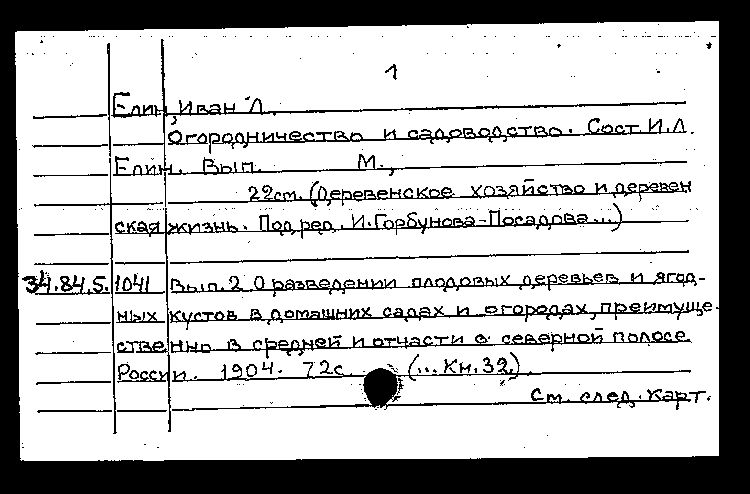 1
Елин, Иван Л.
Огородничество и садоводство. Сост. И.Л.
Елин. Вып. М.,
22см. (Деревенское хозяйство и деревен
ская жизнь. Под ред. И.Горбунова-Посадова...)
34.84.5. 1041 Вып. 2 О разведении плодовых деревьев и ягод-
ных кустов в домашних садах и огородах, преимуще-
ственно в средней и отчасти в северной полосе
России. 1904. 72с. (... Кн. 32.)
См. след. карт.